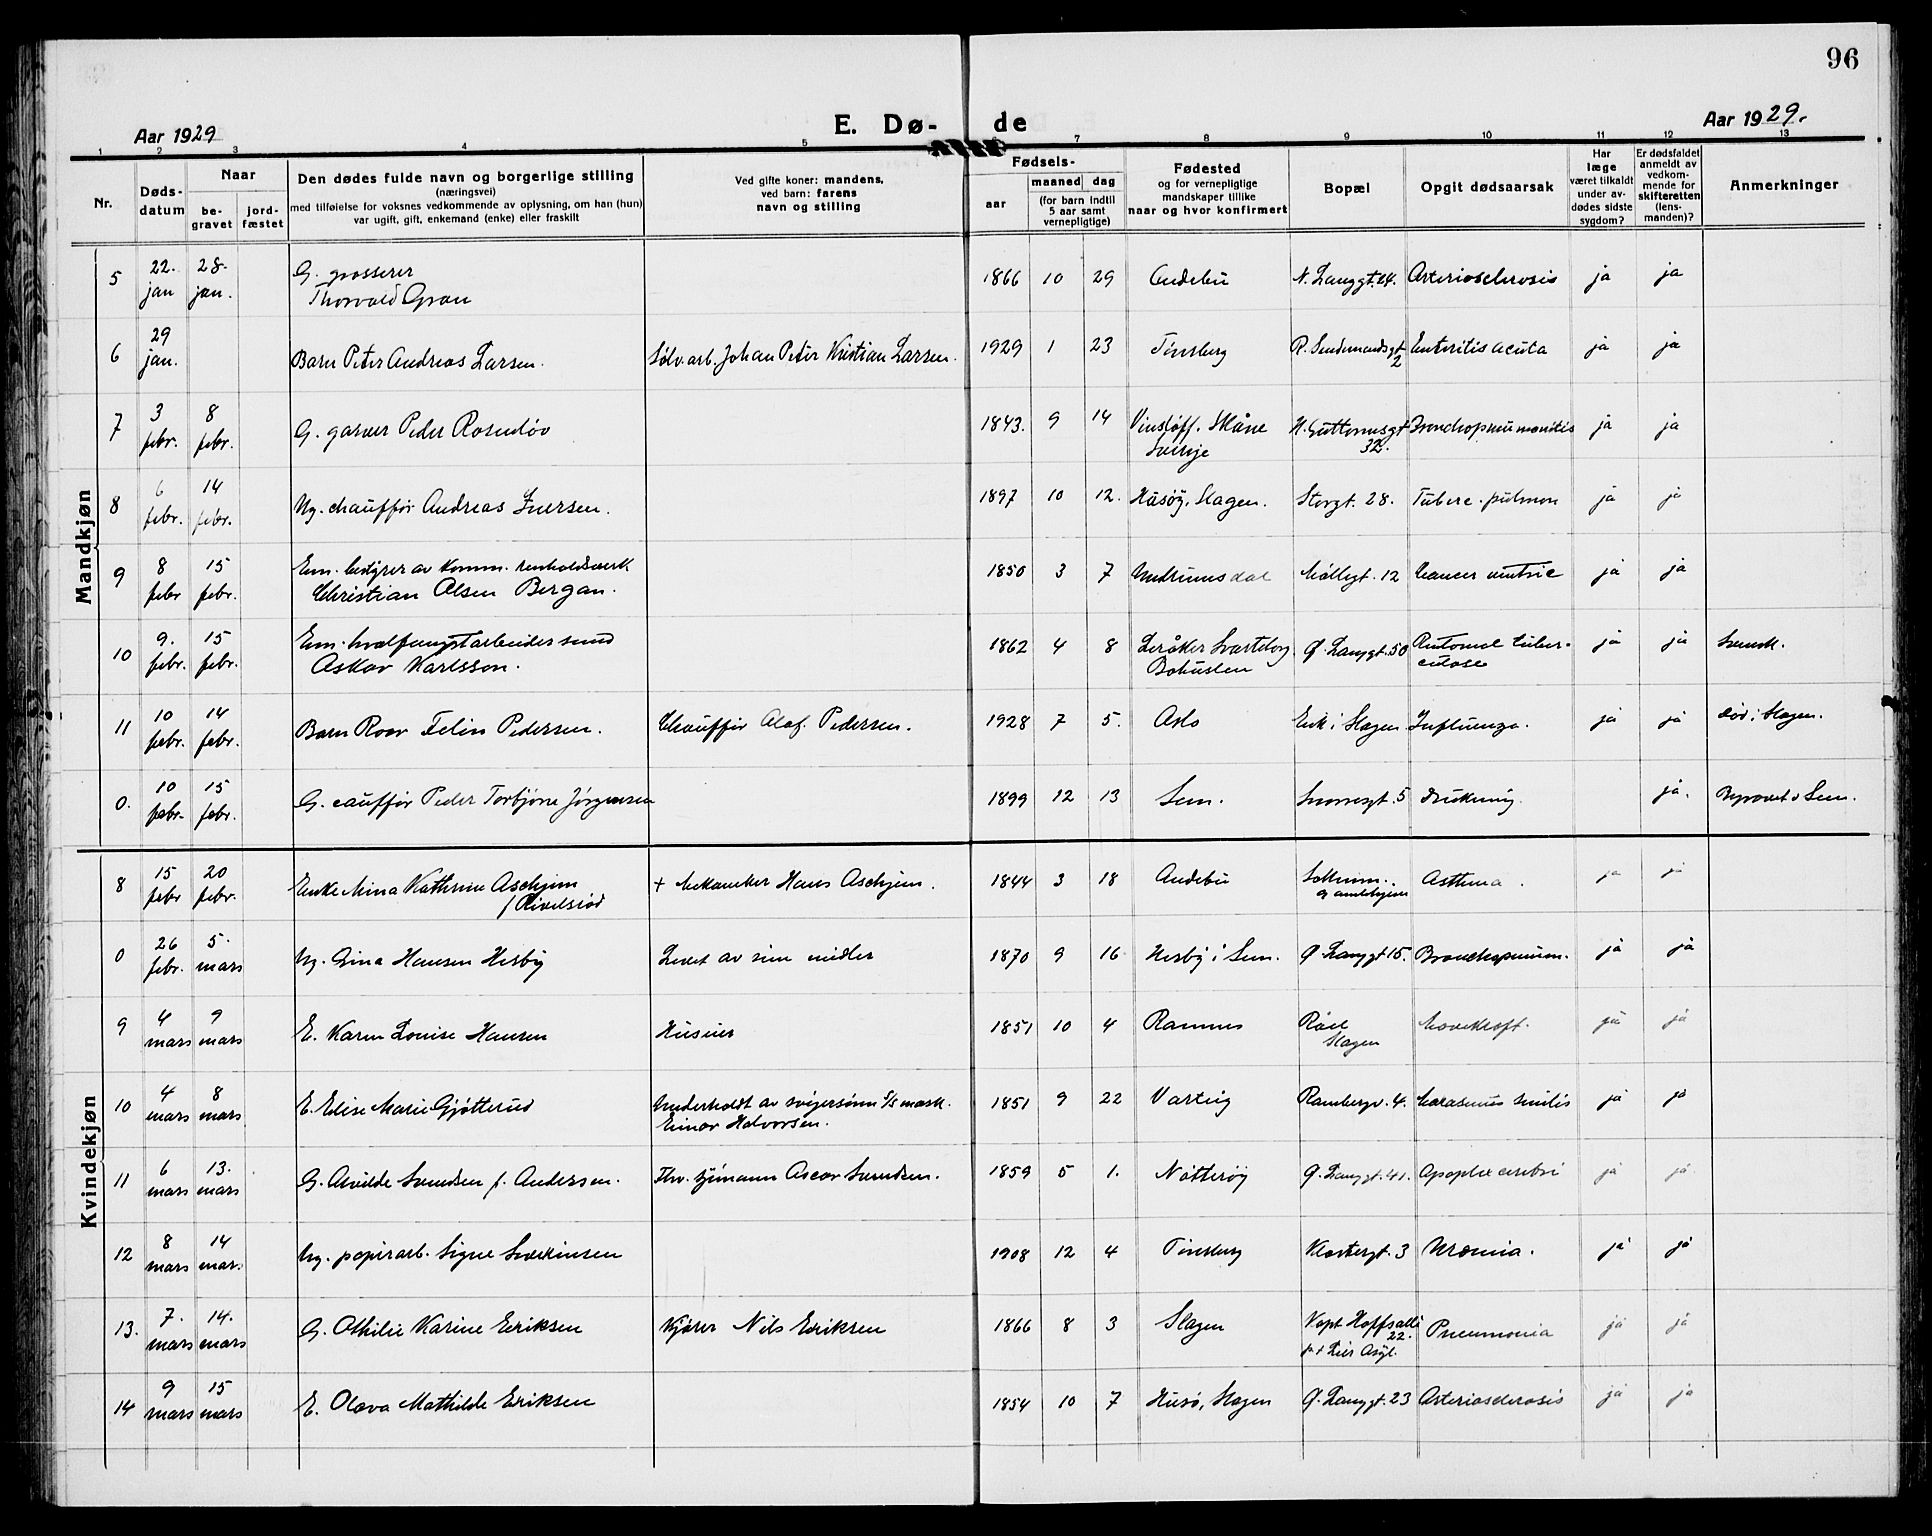 96
Aar 1929
E. Dø-de
Aar 1929.
1 2 3 4 5 7 8 9 10 11 12 13
Nr.
Døds-datum
Naar
be-gravet
jord-fæstet
Den dødes fulde navn og borgerlige stilling
(næringsvei)
med tilføielse for voksnes vedkommende av oplysning, om han (hun)
var ugift, gift, enkemand (enke) eller fraskilt
Ved gifte koner: mandens,
ved barn: farens
navn og stilling
Fødsels-
aar
maaned dag
(for barn indtil
5 aar samt
vernepligtige)
Fødested
og for vernepligtige
mandskaper tillike
naar og hvor konfirmert
Bopæl
Opgit dødsaarsak
Har
læge
været tilkaldt
under av-
dødes sidste
sygdom?
Er dødsfaldet
anmeldt av
vedkom-
mende for
skifteretten
(lens-
manden)?
Anmerkninger
Mandkjøn
5 22. jan 28. jan. G. grosserer Thorvald Gran 1866 10 29 Andebu N. Langgt. 24. Arteriosclerosis ja ja
6 29 jan. Barn Peter Andreas Larsen. Sølv.arb. Johan Peter Kristian Larsen. 1929 1 23 Tønsberg 2 Enteritis acuta ja ja
7 3 febr. 8 febr. G. garver Peder Rosenløv 1843. 9 14 Vinsløff. Skåne Sverige 32. Bronchopneumonitis ja ja
8 6 febr. 14 febr. Ug. chauffør Andreas Iversen. 1897 10 12. Husøy, Slagen. Storgt. 28. Tuberc. pulmon ja ja
9 8 febr 15 febr. Em. bestyrer av komm. renholdsverk Christian Olsen Bergan. 1850 3 7 Undrumsdal Møllegt. 12 Cancer ventric ja ja
10 9. febr. 15 febr. Em. hvalfangstarbeider Askar Karlsson. 1862 4 8 Svarteborg Bohuslen Ø. Langgt. 50 ja ja Svensk.
11 10 febr. 14 febr. Barn Roar Felin Pedersen. Chauffør Olaf Pedersen. 1928 7 5. Oslo Eik i Slagen Influenza. ja ja død i Slagen.
0. 10 febr. 15 febr. G. cauffør Peder Torbjørn Jørgensen 1899 12 13 Sem. Snorresgt. 5 Drukning. ja. Begravet i Sem.
Kvindekjøn
8 15 febr 20 febr. Enke Mina Kathrine Aschjem f. + Mekaniker Hans Aschjem. 1844 3 18 Andebu Solheim. gamlehjem Asthma. ja ja
0 26 febr. 5. mars Ug. Lina Hansen Hesby Levet av sine midler 1870 9 16 Hesby i Sem. Ø. Langgt 15. Bronchopneum. ja ja
9 4 mars 9 mars E. Karen Louise Hansen Huseier 1851 10 4 Ramnes Råel Slagen ja ja
10 4 mars 8 mars E. Elise Marie Gjøtterud Underholdt av svigersønn Einar Halvorsen. 1851 9 22 Varteig Rambergv. 4. Marasmus senilis ja ja
11 6 mars 13. mars G. Alvilde Svendsen f. Andersen. Fhv. sjømann Oscar Svendsen. 1859 5 1. Nøtterøy Ø. Langgt. 41. Apoplex cerebri ja ja
12 8 mars 14 mars Ug. papirarb. Signe Severinsen 1908 12 4 Tønsberg Klostergt. 3 Uræmia. ja ja
13. 7. mars 14. mars G. Othilie Karine Eriksen Kjører Nils Eriksen 1866 8 3 Slagen Kapt Hoffsalle 22. p.t Lier Asyl. Pneumonia ja ja
14 9 mars 15 mars E. Olava Mathilde Eriksen 1854 10 7 Husø, Slagen Ø. Langgt. 23 Arteriosclerosis ja ja